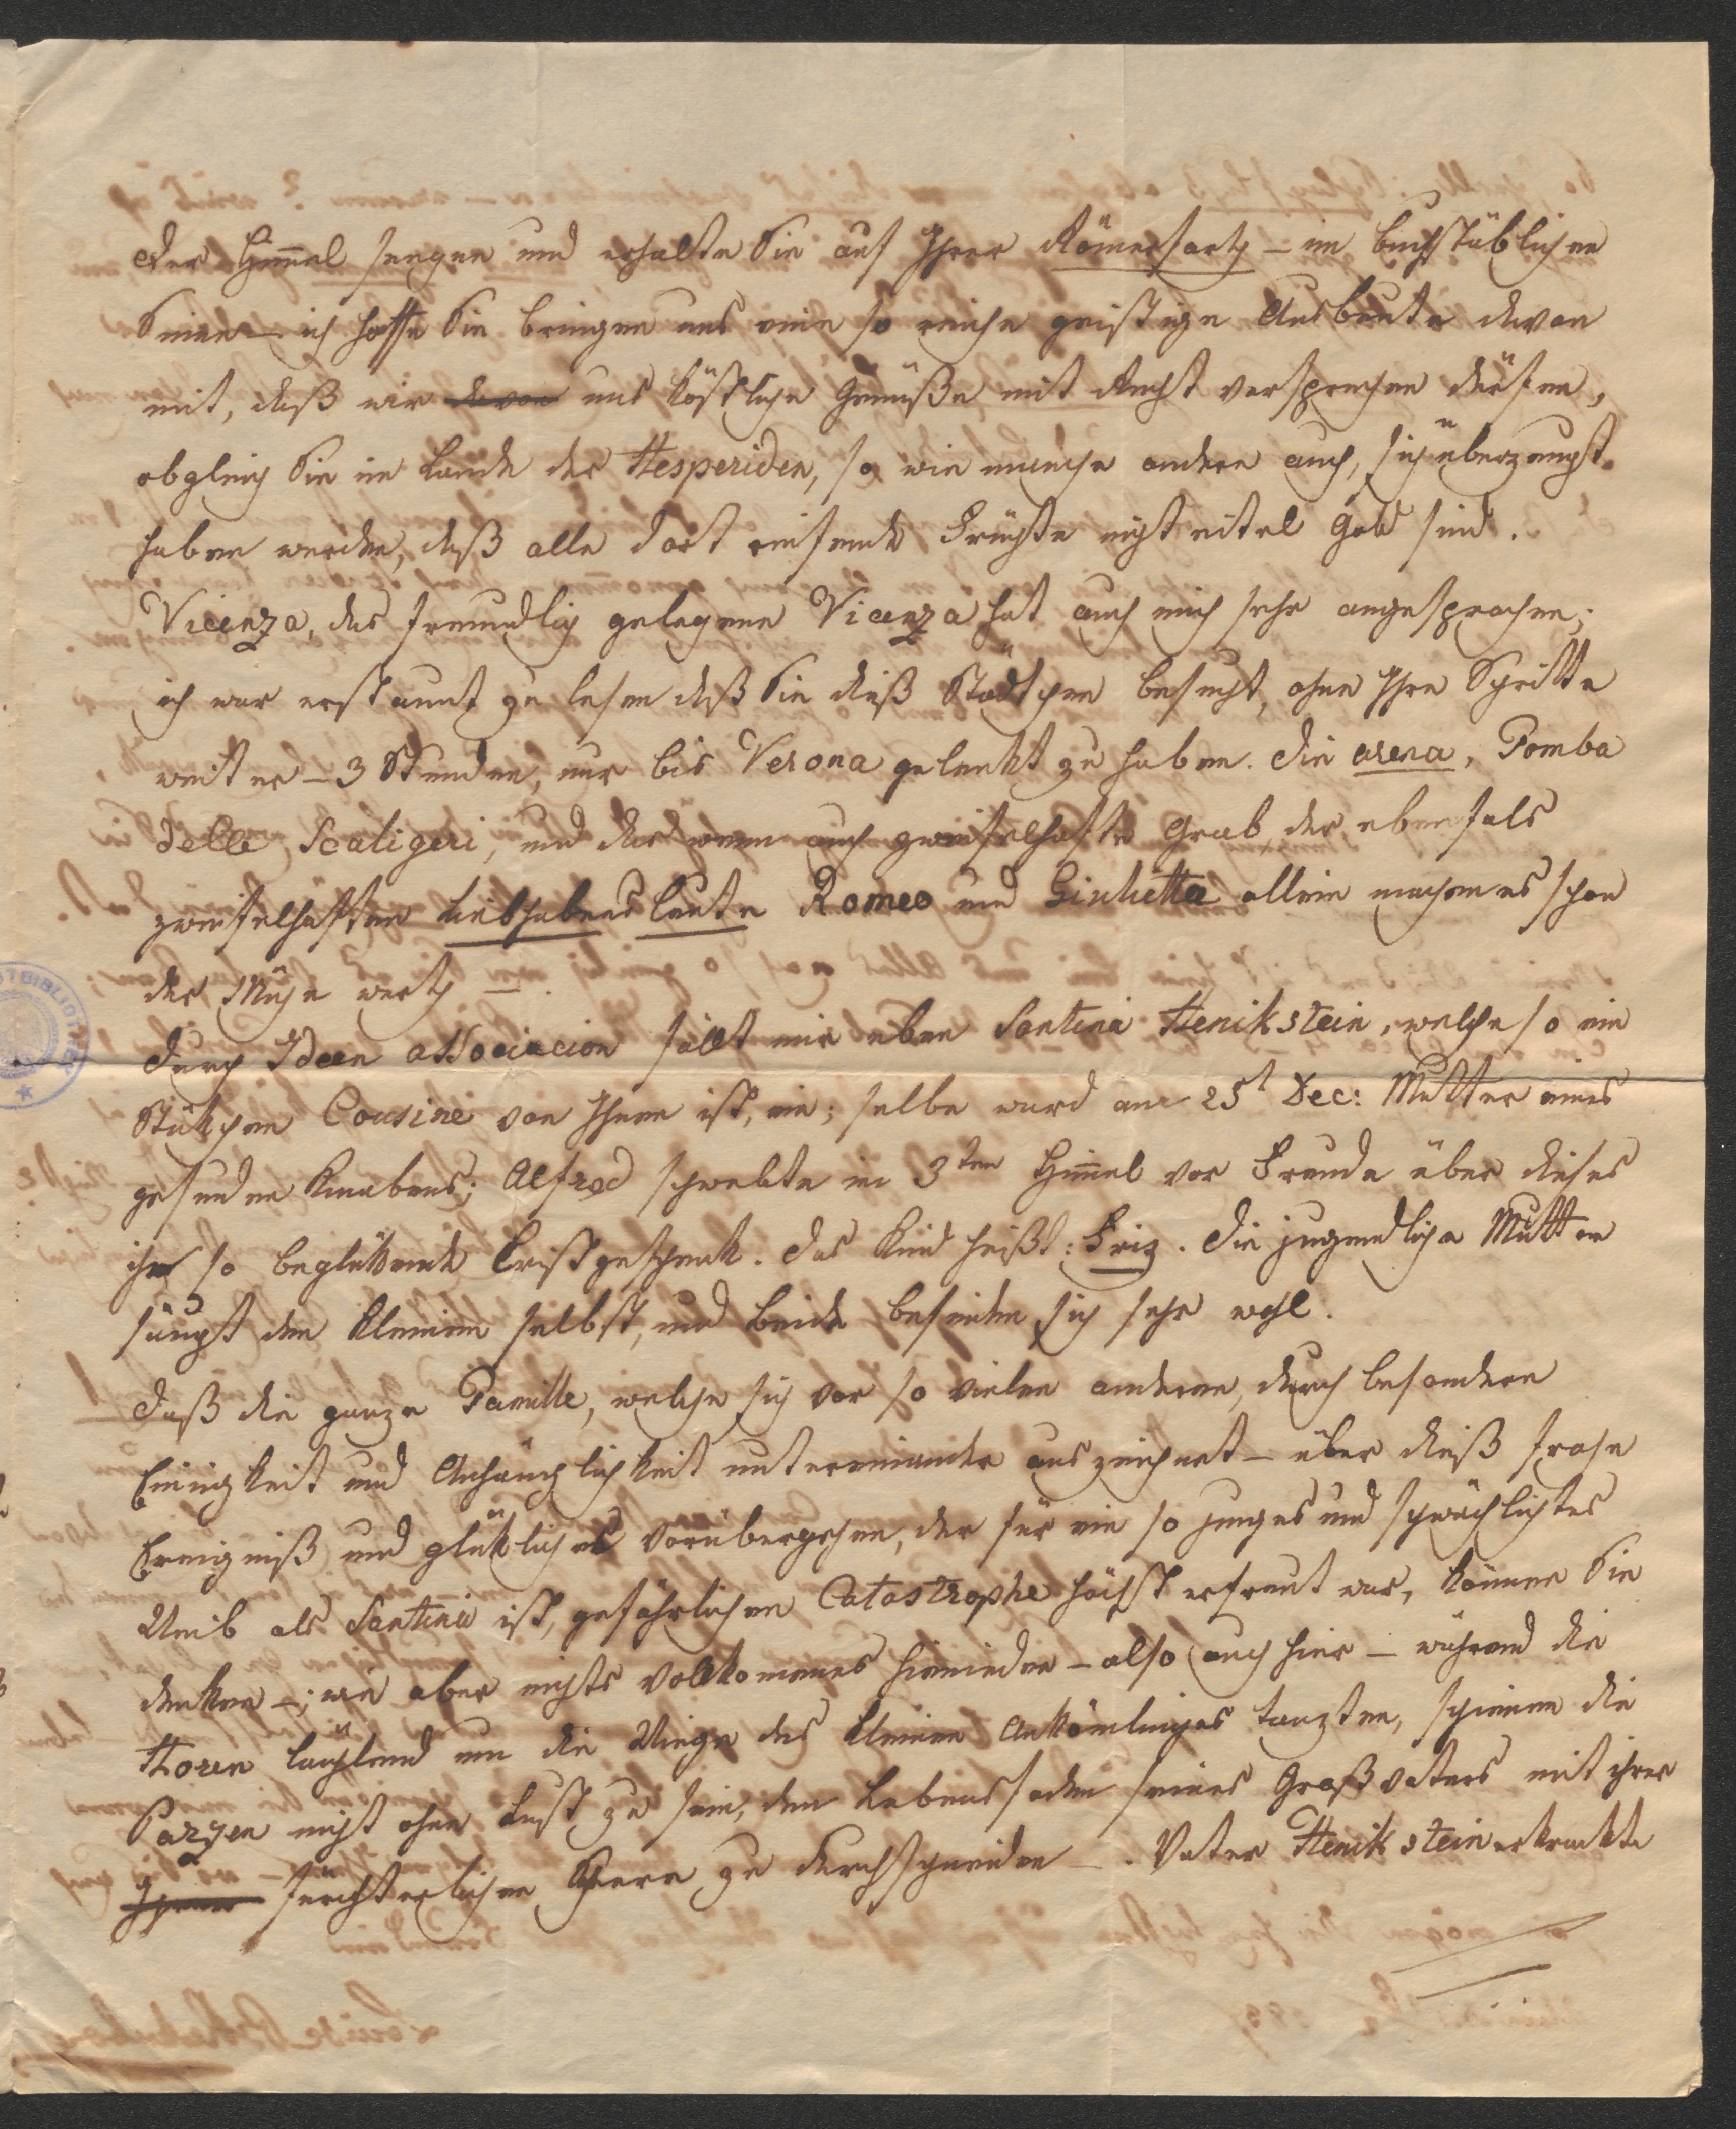 der Himmel seegne und erhalte Sie auf Ihrer Römerfarth – im buchstäblichen
Sinne – ich hoffe Sie bringen uns eine so reiche geistige Ausbeute davon
mit, daß wir davon uns köstliche Genüße mit Recht versprechen dürfen,
obgleich Sie im Lande der Hesperiden, so wie manche andere auch, sich überzeugt
haben werden, daß alle dort reifende Früchte nicht eitel Gold sind.
Vicenza, das freundlich gelegene Vicenza hat auch mich sehr angesprochen;
ich war erstaunt zu lesen daß Sie dieß Städtchen besucht, ohne Ihre Schritte
weiter – 3 Stunden, nur bis Verona gelenkt zu haben. die arena, Tomba
delle Scaligeri, und das wenn auch zweifelhafte Grab der ebenfals
zweifelhaften Liebhabens Leute Romeo und Giulietta allein machen es schon
der Mühe werth –.
durch Ideen association fällt mir eben Santina Henikstein, welche so ein
Stükchen Cousine von Ihnen ist, ein; selbe ward am 25t Dec: Mutter eines
gesunden Knabens; Alfred schwebte im 3ten Himmel vor Freude über dieses
ihn so beglükende Cristgeschenk. das Kind heißt: Friz. die jugendliche Mutter
säugt den Kleinen selbst, und beide befinden sich sehr wohl.
daß die ganze Familie, welche sich vor so vielen anderen, durch besondere
Einigkeit und Anhänglichkeit untereinander auszeichnet – über dieß frohe
Ereigniß und glükliches vorübergehen, der für ein so junges und schwächlichtes
Weib als Santina ist, gefährlichen Catastrophe höchst erfreut war, können Sie
denken –; wie aber nichts vollkomenes hienieden – also auch hier – während die
Horen lächlend um die Wiege des kleinen Ankömlinges tanzten, schienen die
Parzen nicht ohne Lust zu sein, den Lebensfaden seines Großvaters mit ihrer
fürchterlichen Schere zu durchschneiden –. Vater Henikstein erkrankte